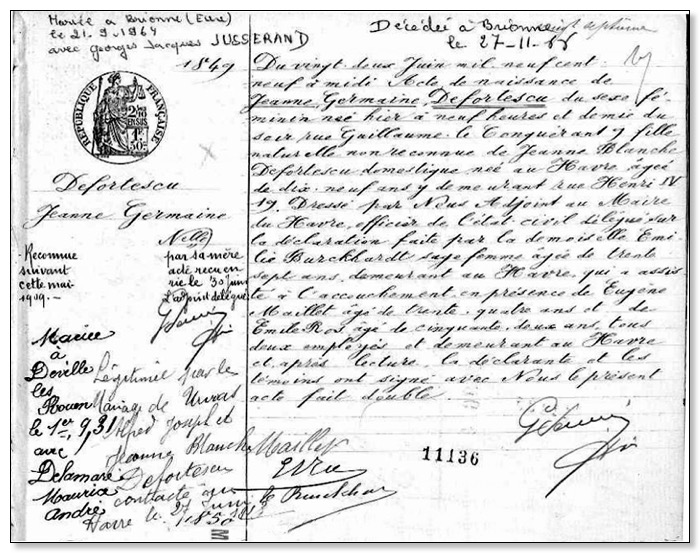 Mariée à Brionne (Eure)
le 21.9.1964
avec Georges Jacques JUSSERAND
Décédée à Brionne
le 27-11-
1849
RÉPUBLIQUE FRANÇAISE
Defortescu
Jeanne Germaine
Nelle
Reconnue
suivant
cette mai
1919.-
par sa mère
acte reçu en
rie le 30 juin
L'adjoint délégué
Mariée
à
Deville
les
Rouen
le 1er, 9, 31
avec
Delamare
Maurice
André
Légitimée par le
Mariage de
Alfred Joseph et
Jeanne Blanche
Defortescu
contracté au
Havre le 27 juin
Du vingt deux Juin mil neuf cent
neuf à midi Acte de naissance de
Jeanne Germaine Defortescu du sexe fé-
minin née hier à neuf heures et demie du
soir rue Guillaume le Conquérant 9 fille
naturelle non reconnue de Jeanne Blanche
Defortescu domestique née au Havre âgée
de dix neuf ans y demeurant rue Henri IV
19. Dressé par Nous Adjoint au Maire
du Havre, officier de l'état civil délégué sur
la déclaration faite par la demoiselle Emi-
lie Burckhardt sage femme âgée de trente
sept ans, demeurant au Havre, qui a assis
té à l'accouchement en présence de Eugène
Maillet âgé de trente quatre ans et de
Emile Ros âgé de cinquante deux ans, tous
deux employés et demeurant au Havre
et après lecture, la déclarante et les
témoins ont signé avec Nous le présent
acte fait double.
Maillet
11136